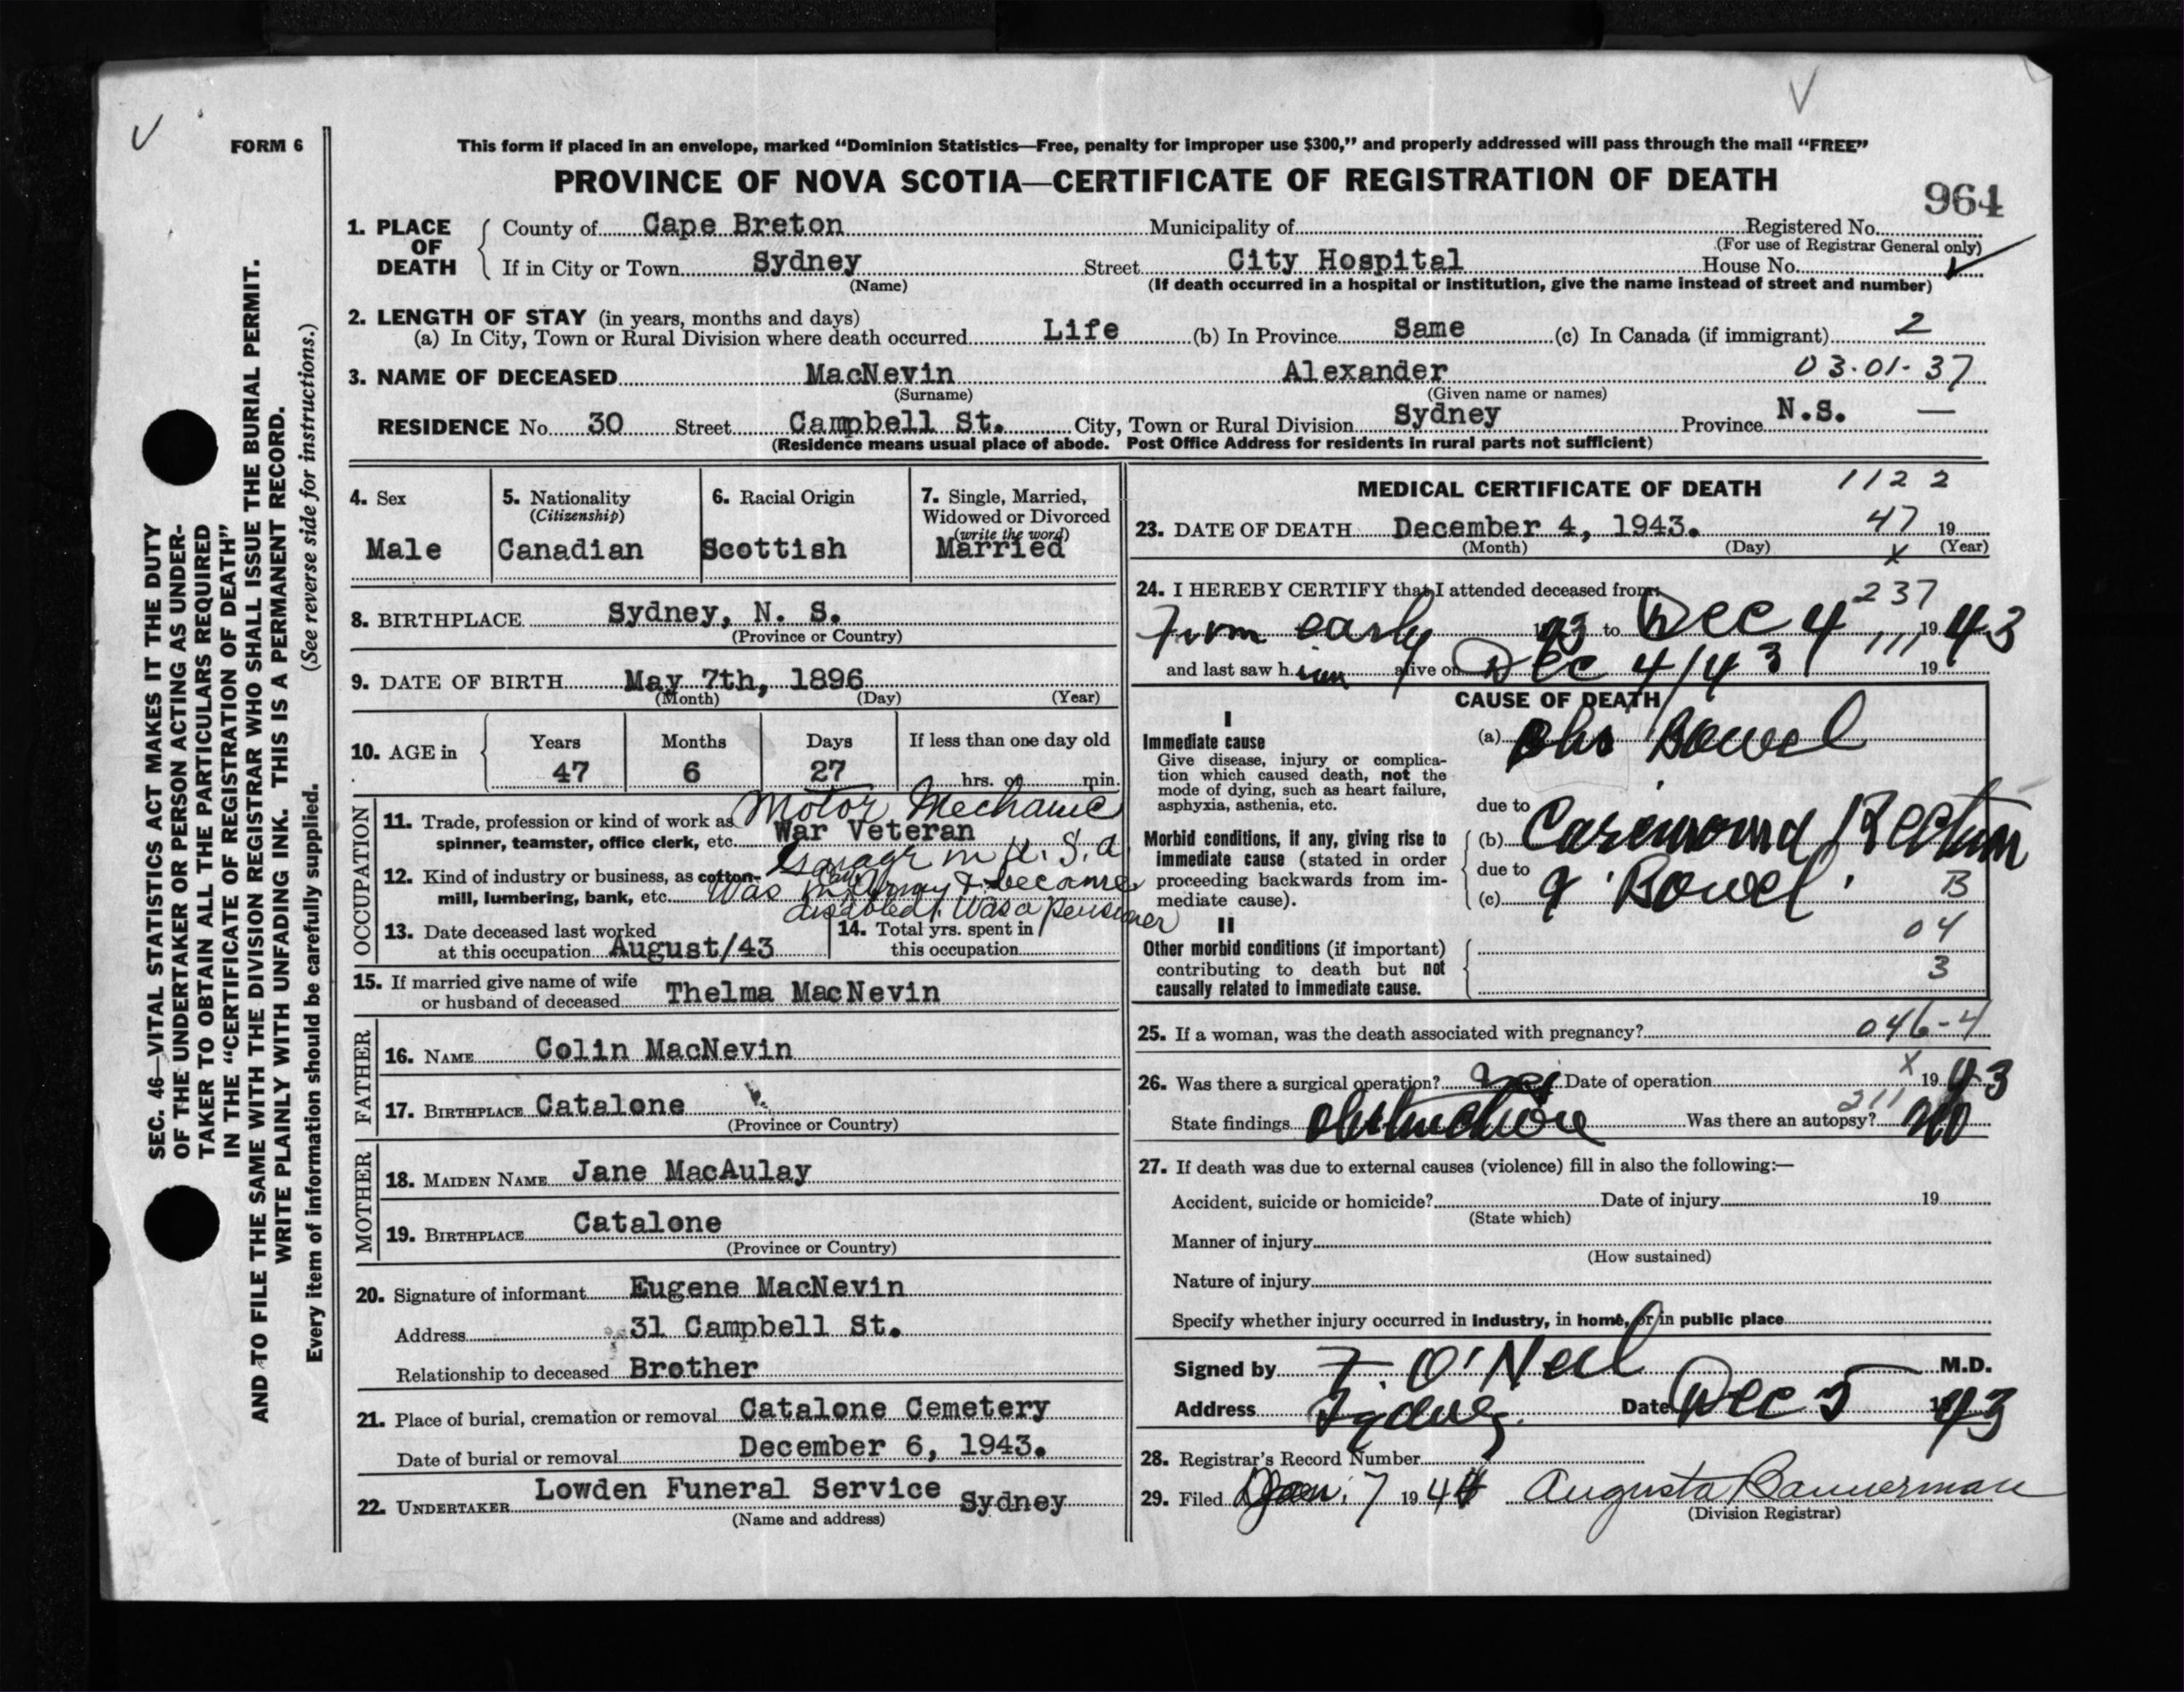 FORM 6
This form if placed in an envelope, marked “Dominion Statistics—Free, penalty for improper use $300,” and properly addressed will pass through the mail “FREE”
PROVINCE OF NOVA SCOTIA—CERTIFICATE OF REGISTRATION OF DEATH
964
SEC. 46—VITAL STATISTICS ACT MAKES IT THE DUTY
OF THE UNDERTAKER OR PERSON ACTING AS UNDER-
TAKER TO OBTAIN ALL THE PARTICULARS REQUIRED
IN THE “CERTIFICATE OF REGISTRATION OF DEATH”
AND TO FILE THE SAME WITH THE DIVISION REGISTRAR WHO SHALL ISSUE THE BURIAL PERMIT.
WRITE PLAINLY WITH UNFADING INK. THIS IS A PERMANENT RECORD.
Every item of information should be carefully supplied. (See reverse side for instructions.)
1. PLACE OF DEATH
County of Cape Breton Municipality of Registered No.
(For use of Registrar General only)
If in City or Town Sydney Street City Hospital House No.
(Name) (If death occurred in a hospital or institution, give the name instead of street and number)
2. LENGTH OF STAY (in years, months and days)
(a) In City, Town or Rural Division where death occurred Life (b) In Province Same (c) In Canada (if immigrant) 2
3. NAME OF DECEASED MacNevin Alexander 03-01-37
(Surname) (Given name or names)
RESIDENCE No. 30 Street Campbell St. City, Town or Rural Division Sydney Province N.S. —
(Residence means usual place of abode. Post Office Address for residents in rural parts not sufficient)
4. Sex
Male
5. Nationality
(Citizenship)
Canadian
6. Racial Origin
Scottish
7. Single, Married,
Widowed or Divorced
(write the word)
Married
8. BIRTHPLACE Sydney, N. S.
(Province or Country)
9. DATE OF BIRTH May 7th, 1896
(Month) (Day) (Year)
10. AGE in
Years Months Days If less than one day old
47 6 27 hrs. or min.
OCCUPATION
Motor Mechanic
11. Trade, profession or kind of work as
spinner, teamster, office clerk, etc. War Veteran
Garage in U.S.A
12. Kind of industry or business, as cotton-
mill, lumbering, bank, etc. Was in Army & became
disabled. Was a pensioner
13. Date deceased last worked
at this occupation August/43
14. Total yrs. spent in
this occupation
15. If married give name of wife
or husband of deceased Thelma MacNevin
FATHER
16. NAME Colin MacNevin
17. BIRTHPLACE Catalone
(Province or Country)
MOTHER
18. MAIDEN NAME Jane MacAulay
19. BIRTHPLACE Catalone
(Province or Country)
20. Signature of informant Eugene MacNevin
Address 31 Campbell St.
Relationship to deceased Brother
21. Place of burial, cremation or removal Catalone Cemetery
Date of burial or removal December 6, 1943.
22. UNDERTAKER Lowden Funeral Service Sydney
(Name and address)
MEDICAL CERTIFICATE OF DEATH 1122
23. DATE OF DEATH December 4, 1943. 47 19
(Month) (Day) x (Year)
24. I HEREBY CERTIFY that I attended deceased from: 237
From early 43 to Dec 4 1943
111
and last saw him alive on Dec 4/43 19
CAUSE OF DEATH
I
Immediate cause
Give disease, injury or complica-
tion which caused death, not the
mode of dying, such as heart failure,
asphyxia, asthenia, etc.
(a) Obs Bowel
due to
Morbid conditions, if any, giving rise to
immediate cause (stated in order
proceeding backwards from im-
mediate cause).
(b) Carcinoma Rectum
due to
(c) & Bowel. B
II
Other morbid conditions (if important)
contributing to death but not
causally related to immediate cause.
04
3
25. If a woman, was the death associated with pregnancy? 046-4
26. Was there a surgical operation? yes Date of operation x 1943
State findings obstruction Was there an autopsy? 211 no
27. If death was due to external causes (violence) fill in also the following:—
Accident, suicide or homicide? Date of injury 19
(State which)
Manner of injury
(How sustained)
Nature of injury
Specify whether injury occurred in industry, in home, or in public place
Signed by F. O'Neil M.D.
Address Sydney. Date Dec 5 1943
28. Registrar's Record Number
29. Filed Jan. 7 1944 Augusta Bannerman
(Division Registrar)